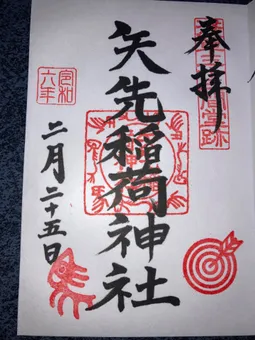 奉拝
矢先稲荷神社
令和
六年
二月二十五日